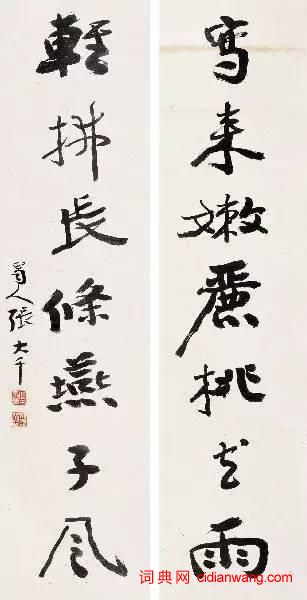 寫來嫩麗桃花雨
輕拂長條燕子風
蜀人張大千
词典网 cidianwang.com